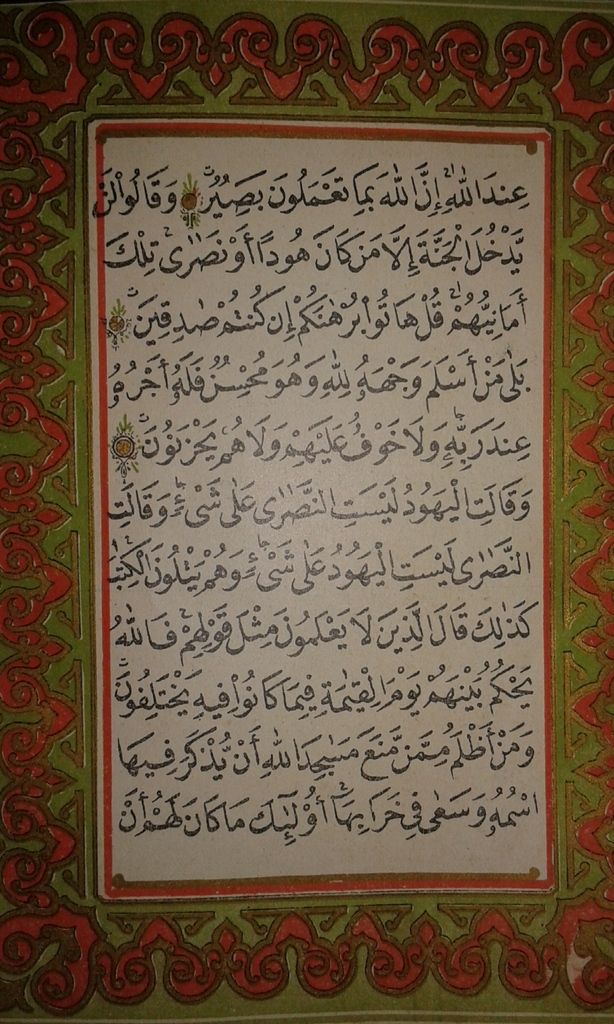 عِندَ اللّٰهِ ۗ اِنَّ اللّٰهَ بِمَا تَعْمَلُونَ بَصِيرٌ وَقَالُوا لَنْ
يَّدْخُلَ الْجَنَّةَ إِلَّا مَن كَانَ هُودًا أَوْ نَصٰرٰى ۗ تِلْكَ
أَمَانِيُّهُمْ ۗ قُلْ هَاتُوْا بُرْهٰنَكُمْ إِن كُنْتُمْ صٰدِقِينَ
بَلٰى مَنْ أَسْلَمَ وَجْهَهُ لِلّٰهِ وَهُوَ مُحْسِنٌ فَلَهٗٓ أَجْرُهُ
عِندَ رَبِّهٖ وَلَا خَوْفٌ عَلَيْهِمْ وَلَا هُمْ يَحْزَنُونَ
وَقَالَتِ الْيَهُودُ لَيْسَتِ النَّصٰرٰى عَلٰى شَيْءٍ وَقَالَتِ
النَّصٰرٰى لَيْسَتِ الْيَهُودُ عَلٰى شَيْءٍ وَهُمْ يَتْلُونَ الْكِتٰبَ
كَذٰلِكَ قَالَ الَّذِينَ لَا يَعْلَمُونَ مِثْلَ قَوْلِهِمْ ۚ فَاللّٰهُ
يَحْكُمُ بَيْنَهُمْ يَوْمَ الْقِيٰمَةِ فِيمَا كَانُوْا فِيهِ يَخْتَلِفُونَ
وَمَنْ أَظْلَمُ مِمَّنْ مَّنَعَ مَسٰجِدَ اللّٰهِ أَنْ يُّذْكَرَ فِيهَا
اسْمُهُ وَسَعٰى فِي خَرَابِهَا ۗ أُوْلٰٓئِكَ مَا كَانَ لَهُمْ أَنْ